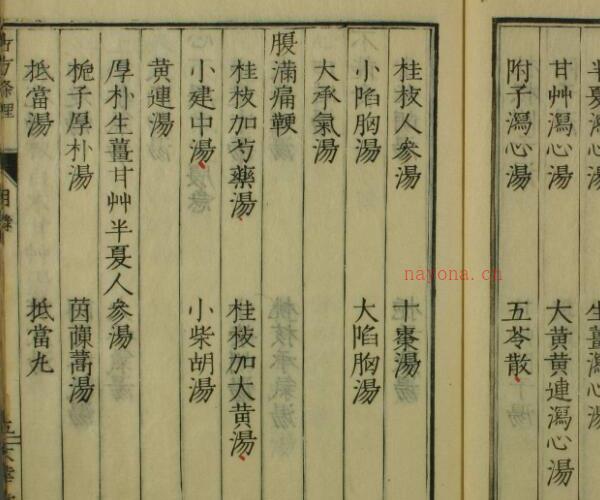 半夏瀉心湯 生薑瀉心湯
甘艸瀉心湯 大黃黃連瀉心湯
附子瀉心湯 五苓散
桂枝人參湯 十棗湯
小陷胸湯 大陷胸湯
大承氣湯
腹滿痛鞕
桂枝加芍藥湯 桂枝加大黃湯
小建中湯 小柴胡湯
黃連湯
厚朴生薑甘艸半夏人參湯
梔子厚朴湯 茵蔯蒿湯
抵當湯 抵當丸
nayona.cn